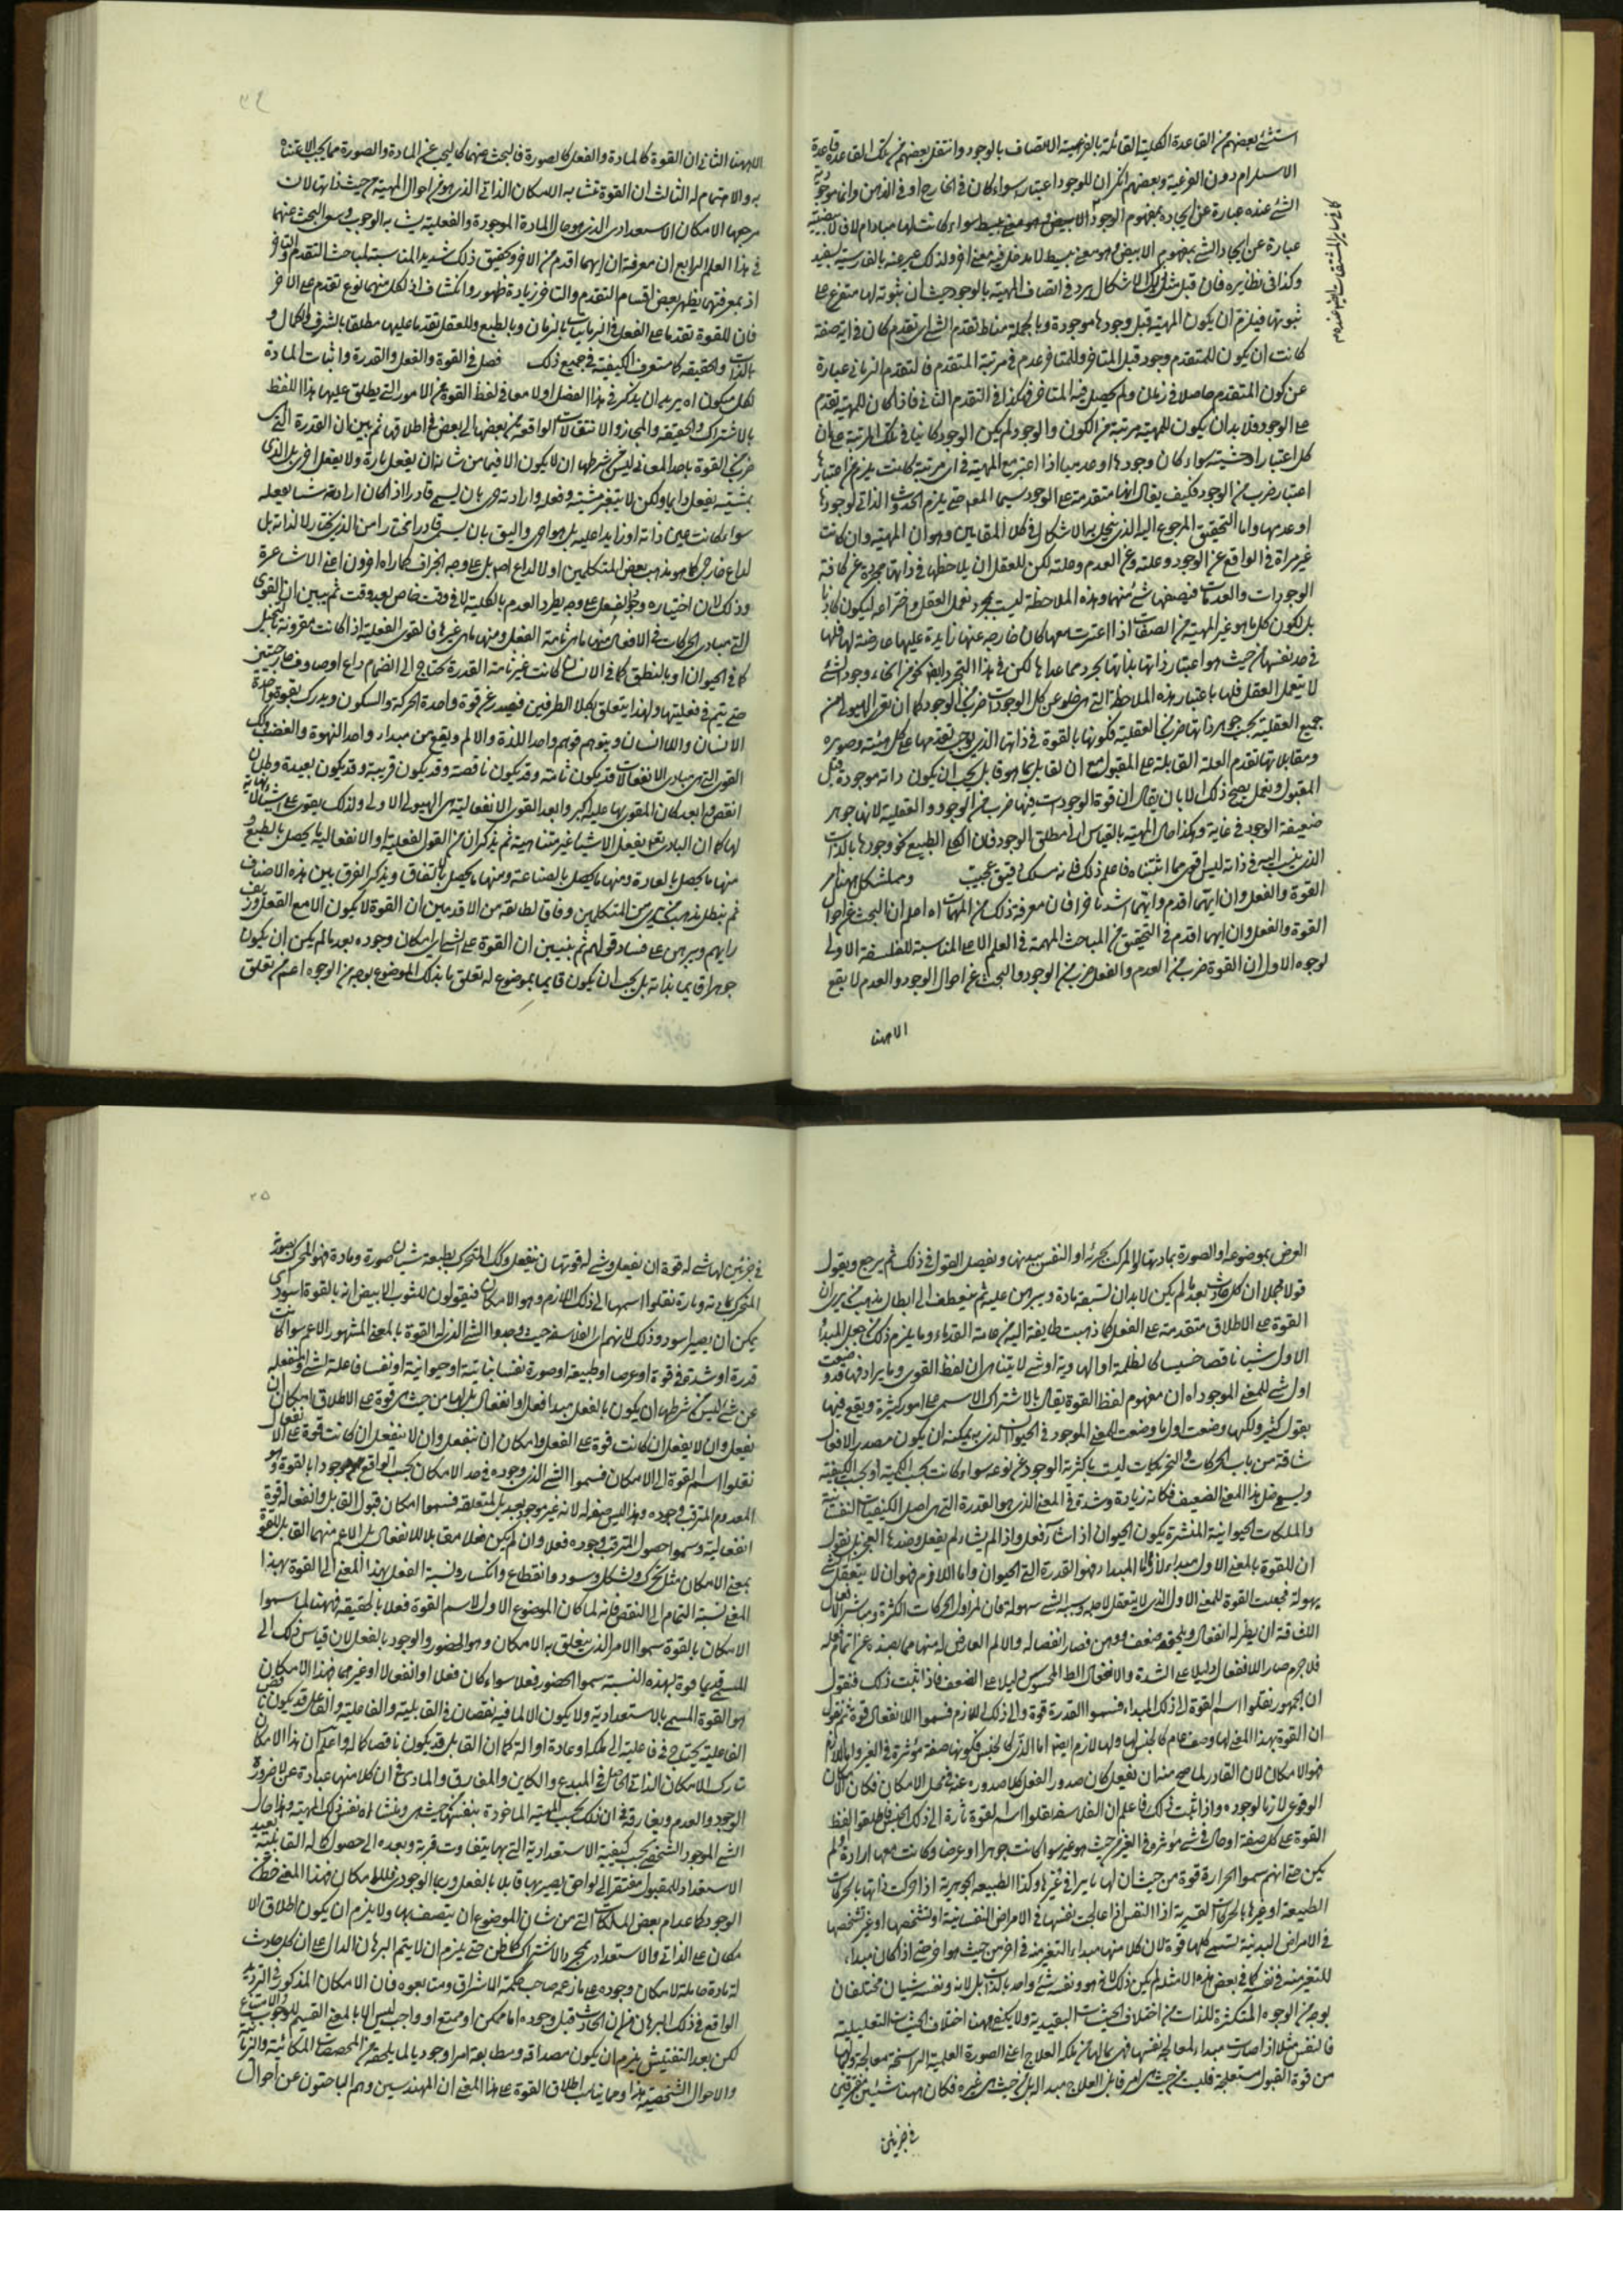 استثنى بعضهم من القاعدة الكلية القائلة بالفرعية الاتصاف بالوجود وانتقل بعضهم من تلك القاعدة قاعدة
الاستلزام دون الفرعية وبعضهم انكر ان للوجود اعتبار سواء كان في الخارج او في الذهن وانما موجودية
الشئ عنده عبارة عن اتحاده بمفهوم الموجود
عبارة عن اتحاد الشئ بمفهوم الابيض وهو معنى بسيط لا مدخل فيه معنى اخر ولذلك يعبر عنه بالفارسية بسفيد
وكذا في نظايره فان قيل مثل الاشكال يرد في اتصاف المهية بالوجود حيث ان ثبوته لها متفرع على
ثبوتها فيلزم ان يكون المهية قبل وجودها موجودة وبالجملة مناط تقدم الشئ اى تقدم كان في اية صفة
كانت ان يكون للمتقدم وجود قبل المتاخر وللمتاخر عدم في مرتبة المتقدم فالتقدم الزماني عبارة
عن كون المتقدم حاصلا في زمان ولم يحصل فيه المتاخر فهكذا في التقدم الذاتي فاذا كان للمهية تقدم
على الوجود فلا بد ان يكون للمهية مرتبة من الكون والوجود لم يكن الوجود كاينا في تلك المرتبة على ان
كل اعتبار او حيثية سواء كان وجودها او عدمها اذا اعتبر مع المهية في اى مرتبة كانت يلزم من اعتبارها
اعتبار ضرب من الوجود فكيف يقال انها متقدمة على الوجود سيما المعلم حتى يلزم الحدوث الذاتي لوجودها
او عدمها واما التحقيق المرجوع اليه الذى ينحل به الاشكال في كلا المقامين وهو ان المهية وان كانت
غير معراة في الواقع عن الوجود وعلته وعن العدم وعلته لكن للعقل ان يلاحظها في ذاتها مجردة عن كافة
الوجودات والعدمات فيصفها بشئ منها وهذه الملاحظة ليست بمجرد تعمل العقل واختراعه ليكون كاذبا
بل لكون كل ما هو غير المهية من الصفات اذا اعتبرت معها كان خارجة عنها زايدة عليها عارضة لها فلها
في حد نفسها من حيث هو اعتبار ذاتها بذاتها مجرد عما عداها لكن في هذا التجريد ايضا نحو من انحاء وجود الشئ
لا بتعمل العقل فلها باعتبار هذه الملاحظة التى هى خلو عن كل الوجودات ضرب من الوجود كما ان تعرى الهيولى من
جميع العقلية بحسب جوهر ذاتها ضرب من العقلية فكونها بالقوة في ذاتها الذى يوجب تقدمها على كل هيئة وصورة
ومقابلاتها تقدم العلة القابلة على المقبول مع ان القابل بما هو قابل يجب ان يكون ذاته موجودة قبل
المقبول ونعمل يصح ذلك الا بان يقال ان قوة الوجودات فيها ضرب من الوجود والفعلية لانها جوهر
ضعيفة الوجود في غاية وهكذا حال المهية بالقياس الى مطلق الوجود فان الكلى الطبيعى نحو وجودها بالذات
الذى ينسب اليه في ذاته ليس اقوى مما اثبتناه فاعلم ذلك فانه مسلك دقيق عجيب ومما يشكل ههنا امر
القوة والفعل وان ايتهما اقدم وايتهما اشد تاخرا فان معرفة ذلك من المهمات اه اعلم ان البحث عن احوال
القوة والفعل وان ايهما اقدم في التحقيق من المباحث المهمة في العلم الاعلى المناسبة للفلسفة الاولى
لوجوه الاول ان القوة ضرب من العدم والفعل ضرب من الوجود والبحث عن احوال الوجود والعدم لا يقع
الا ههنا
كما في ساير المشتقات ايضا عندهم
٣٤
الا ههنا الثاني ان القوة كالمادة والفعل كالصورة فالبحث عنهما كالبحث عن المادة والصورة مما يجب الاعتناء
به والاهتمام له الثالث ان القوة تشابه الامكان الذاتى الذى هو من احوال المهية من حيث ذاتها لان
مرجعها الامكان الاستعدادى الذى هو حال المادة الموجودة والفعلية يشابه الوجوب وسع البحث عنهما
في هذا العلم الرابع ان معرفة ان ايهما اقدم من الاخر وتحقيق ذلك شديد المناسبة لمباحث التقدم والتاخر
اذ بمعرفتهما يظهر بعض اقسام التقدم والتاخر زيادة ظهور وانكشاف اذ لكل منهما نوع تقدم على الاخر
فان للقوة تقدما على الفعل في الزمانيات بالزمان وبالطبع وللفعل تقدما عليها مطلقا بالشرف والكمال و
بالذات والحقيقة كما ستعرف الكيفية في جميع ذلك فصل في القوة والفعل والقدرة واثبات المادة
لكل متكون اه يريد ان يذكر في هذا الفصل اولا معاني لفظ القوة من الامور التى يطلق عليها هذا اللفظ
بالاشتراك والحقيقة والمجاز والانتقالات الواقعة من بعضها الى بعض في اطلاقها ثم يبين ان القدرة التى
ضرب من القوة باحد المعاني ليس من شرطها ان لا يكون الا فيما من شانه ان يفعل تارة ولا يفعل اخرى بل الذى
بمشيته يفعل دايما ولكن لا يتغير مشيته وفعله وارادته حرى بان يسمى قادرا اذ كان ارادته شيا يفعله
سواء كانت عين ذاته او زايدا عليه بل هو احرى واليق بان يسمى قادرا مختارا من الذى يختار لا لذاته بل
لداع خارجى كما هو مذهب بعض المتكلمين او لا لداع اصلا بل على وجه الجزاف كما راه اخرون اعنى الاشاعرة
وذلك لان اختياره وجوبا لفعل على وجه يطرد العدم بالكلية لا في وقت خاص بعد وقت ثم يبين ان القوى
التى مبادى الحركات في الافعال منها ما هى تامة الفعل ومنها ما هى غيرها فالقوى الفعلية اذا كانت مقرونة بتخيل
كما في الحيوان او بالنطق كما في الانسان كانت غير تامة القدرة تحتاج الى انضمام داع او صارف خارجيتين
حتى يتم في فعليتها ولهذا يتعلق بكلا الطرفين فيصدر عن قوة واحدة الحركة والسكون ويدرك بقوة واحدة
الانسان واللا انسان ويتوهم بوهم واحد اللذة والالم ويقع من مبدا واحد الشهوة والغضب وتلك
القوى التى هى مبادى الانفعالات قد يكون تامة وقد يكون ناقصة وقد يكون قريبة وقد يكون بعيدة وظ ان
لها كما ان البارى تعالى يفعل الاشياء غير متناهية ثم يذكر ان من القوى الفعلية او الانفعالية ما يحصل بالطبع و
منها ما يحصل بالعادة ومنها ما يحصل بالصناعة ومنها ما يحصل بالاتفاق ويذكر الفرق بين هذه الاصناف
ثم يبطل مذهب من المتكلمين وفاقا لطايفة من الاقدمين ان القوة لا يكون الا مع الفعل
رايهم ويبرهن على فساد قولهم ثم يتبين ان القوة على الشئ اى امكان وجوده بعد ما لم يكن ان يكون
جوهرا قايما بذاته بل يجب ان يكون قايما بموضوع له تعلق ما بذلك الموضوع بوجه من الوجوه اعم من تعلق
العرض بموضوعه او الصورة بمادتها او المركب بجزئه او النفس ببدنها ويفصل القول في ذلك ثم يرجع ويقول
قولا مجملا ان كل حادث بعد ما لم يكن لا بد ان تسبقه مادة ويبرهن عليه ثم ينعطف الى ابطال مذهب من يرى ان
القوة على الاطلاق متقدمة على الفعل كما ذهبت طايفة اليه من عامة القدماء وما يلزم ذلك من جعل المبدا
الاول شيا ناقصا خسيسا كالظلمة او الهاوية او شئ لا يتناهى ان لفظ القوى وما يرادفها قد وضعت
اول شئ للمعنى الموجود اه ان مفهوم لفظ القوة يقال بالاشتراك الاسمى على امور كثيرة ويقع فيها
بقول كثير ولكنها وضعت اول ما وضعت للمعنى الموجود في الحيوان الذى به يمكنه ان يكون مصدر الافعال
شاقة من باب الحركات والتحريكات ليست باكثرية الوجود عن نوعه سواء كانت بحسب الكمية او بحسب الكيفية
ويسمى ضد هذا المعنى الضعيف فكانه زيادة وشدة في المعنى الذى هو القدرة التى هى اصل الكيفيات النفسانية
والملكات الحيوانية المنشئة يكون الحيوان اذا شاء فعل واذا لم يشاء لم يفعل وضدها العجز بل نقول
ان للقوة بالمعنى الاول مبداء ولازما اما المبداء فهو القدرة التى للحيوان واما اللازم فهو ان لا ينفعل الشئ
بسهولة فجعلت القوة للمعنى الاول الذى لا ينفعل لاجله وبسببه الشئ بسهولة فان لمزاول الحركات الكثيرة
فلا جرم صار اللا انفعال دليلا على الشدة والانفعال الظ المحسوس دليلا على الضعف فاذا ثبت ذلك فنقول
ان الجمهور نقلوا اسم القوة الى ذلك المبداء فسموا القدرة قوة والى ذلك اللازم فسموا اللا انفعال قوة ثم نقول
ان القوة بهذا المعنى لها وصف عام كالجنس لها ولها لازم ايضا اما الذى كالجنس فكونها صفة مؤثرة في الغير واما اللازم
فهو الامكان لان القادر لما صح منه ان يفعل كان صدور الفعل كلا صدوره عنه في محل الامكان فكان امكان
الوقوع لازما لوجوده واذا ثبت ذلك فاعلم ان الفلاسفة نقلوا اسم القوة تارة الى ذلك الجنس فاطلقوا لفظ
القوة على كل صفة او حال في شئ مؤثرة في الغير من حيث هو غير سواء كانت جوهرا او عرضا وكانت معها ارادة او لم
يكن حتى انهم سموا الحرارة قوة من حيث ان لها تاثيرا في غيرها وكذا الطبيعة الجوهرية اذا حركت ذاتها بالحركات
الطبيعية او غيرها بالحركات القسرية اذا النفس اذا عالجت نفسها في الامراض النفسانية او شخصها او غير شخصها
في الامراض البدنية تسمى كلها قوة لان كلا منها مبداء التغير منه في اخر من حيث هو اخر حتى اذا كان مبداء
للتغير منه في نفسه كما في بعض هذه الامثلة لم يكن ذلك لانه هو ونفسه شئ واحد بالذات بل لانه ونفسه شيان مختلفان
بوجه من الوجوه المتكثرة للذات من اختلاف الحيثيات التقييدية ولا يكفي ههنا اختلاف الحيثيات التعليلية
فالنفس مثلا اذا صارت مبداء المعالجة نفسها فهى بما لها من ملكة العلاج اعنى الصورة العلمية الراسخة معالجة وبما لها
من قوة القبول مستعلجة فليست من حيث هى امر قابل العلاج مبداء له بل من حيث هى غيره فكان ههنا شيئين مفترقين
في جزئين
٣٥
في جزئين لها شئ له قوة ان يفعل وشئ له قوة ان ينفعل وكك المتحرك بطبعه شيان صورة ومادة فهو المحرك بصورته
المتحرك بمادته وتارة نقلوا اسمها الى ذلك اللازم وهو الامكان فيقولون للثوب الابيض انه بالقوة اسود اى
يمكن ان يصير اسود وذلك لانهم اى الفلاسفة حيث وجدوا الشئ الذى له القوة بالمعنى المشهور الاعم سواء كانت
قدرة او شدة في قوة او عرضا او طبيعة او صورة نفسا نباتية او حيوانية او نفسا فاعلة لشئ او منفعلة
عن شئ ليس من شرطها ان يكون بالفعل مبدا فعل او انفعال بل لها من حيث هى قوة على الاطلاق امكان ان
يفعل وان لا يفعل ان كانت قوة على الفعل وامكان ان ينفعل وان لا ينفعل ان كانت قوة على الانفعال
نقلوا اسم القوة الى الامكان فسموا الشئ الذى وجوده في حد الامكان بحسب الواقع موجودا بالقوة وهو
انفعالية وسموا حصول المترقب وجوده فعلا وان لم يكن فعلا مقابلا للانفعال بل الاعم منهما القابل للقوة
بمعنى الامكان مثل تحرك وتشكل وتسود وانقطاع وانكسار ونسبة الفعل بهذا المعنى الى القوة بهذا
المعنى نسبة التمام الى النقص فانه لما كان الموضوع الاول لاسم القوة فعلا بالحقيقة فههنا لما سموا
الامكان بالقوة سموا الامر الذى يتعلق به الامكان وهو الحضور والوجود بالفعل لان قياس ذلك الى
المسمى قديما قوة بهذه النسبة سموا الحضور فعلا سواء كان فعلا او انفعالا او غيرهما فهذا الامكان
هو القوة المسمى بالاستعدادية ولا يكون الا لما فيه نقصان في القابلية والفاعلية والفاعل قد يكون ناقص
الفاعلية يحتاج في فاعليته الى ملكة او عادة او آلة كما ان القابل قد يكون ناقصا كاملا واعلم ان هذا الامكان
تارك الامكان الذاتى الحاصل في المبدع والكاين والمفارق والمادى في ان كلا منهما عبارة عن لا ضرورة
الوجود والعدم ويفارقه في ان ذلك بحسب المهية الماخوذة بنفسها من حيث هى ومنشاه نفس تلك المهية وهذا حال
الشئ الموجود الشخصى بحسب كيفية الاستعدادية التى بها يتفاوت قربه وبعده الى حصول كماله
الاستعداد للمقبول مفتقر الى لواحق يصير بها قابلا بالفعل
الوجود كاعدام بعض الملكات التى من شان الموضوع ان يتصف بها ولا يلزم ان يكون اطلاق الا
مكان على الذاتى والاستعدادى بمجرد الاشتراك كما ظن حتى يلزم ان لا يتم البرهان الدال على ان كل حادث
له مادة حاملة لامكان وجوده على ما زعمه صاحب حكمة الاشراق ومتابعوه فان الامكان المذكور في الترديد
الواقع في ذلك البرهان من ان الحادث قبل وجوده اما ممكن او ممتنع او واجب ليس الا بالمعنى القسيم للوجوب والامتناع
لكن بعد التفتيش يلزم ان يكون مصداقه ومطابقه امرا وجوديا لما يلحقه من المخصصات المكانية والزمانية
والاحوال الشخصية هذا ومما يناسب اطلاق القوة على هذا المعنى ان المهندسين وهم الباحثون عن احوال